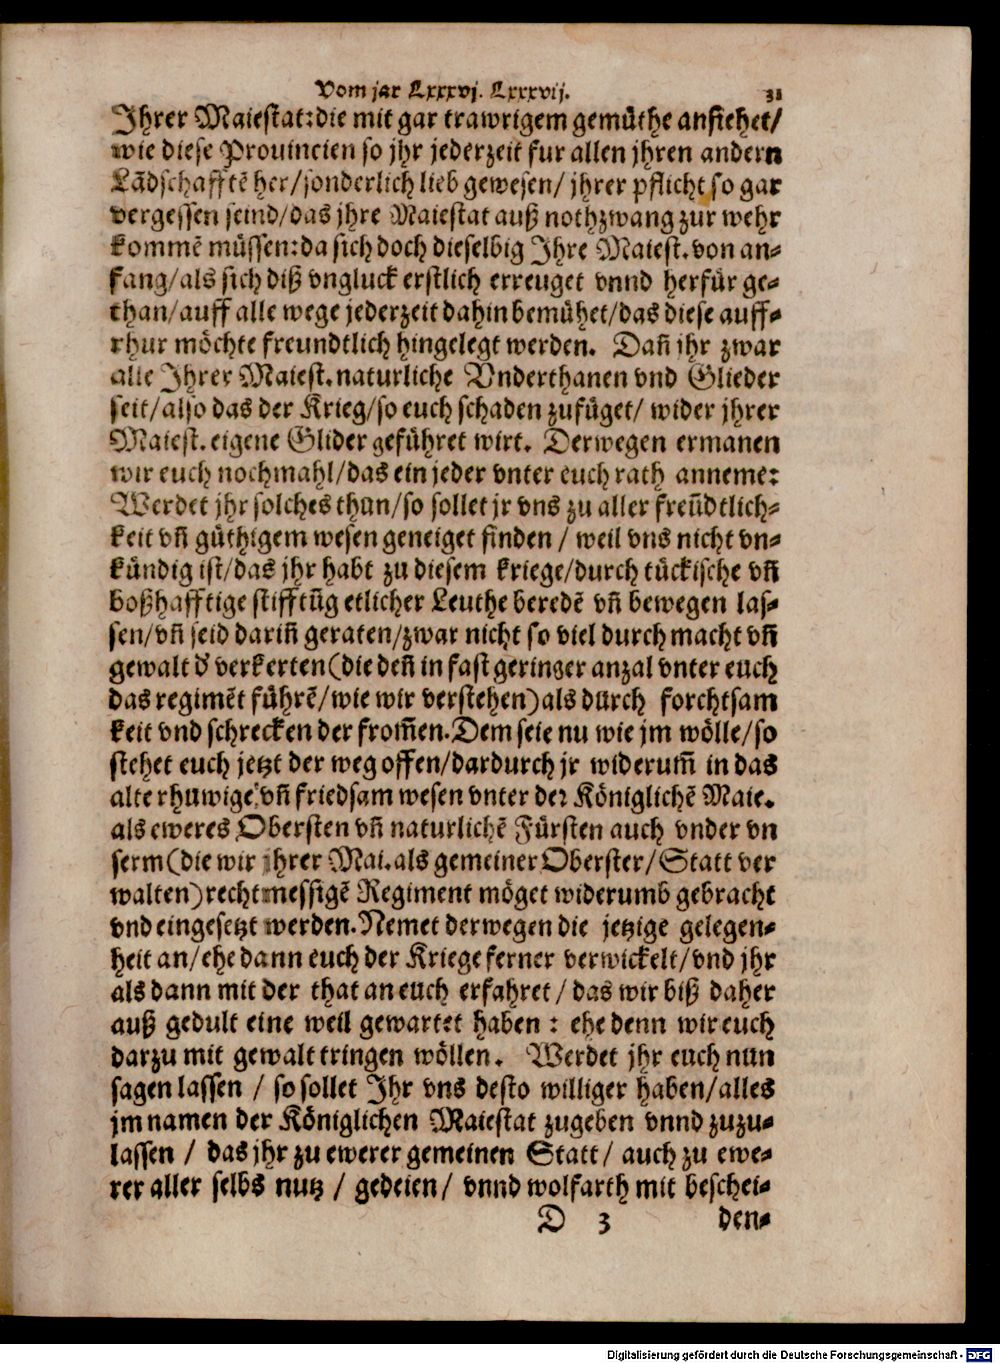 Vom jar Lxxxvj. Lxxxvij. 31
Jhrer Maiestat: die mit gar trawrigem gemüthe ansiehet/
wie diese Prouincien so jhr jederzeit fur allen jhren andern
Lādschafftē her/sonderlich lieb gewesen/ jhrer pflicht so gar
vergessen seind/das jhre Maiestat auß nothzwang zur wehr
kommē müssen: da sich doch dieselbig Jhre Maiest. von an-
fang/als sich diß vngluck erstlich erreuget vnnd herfür ge-
than/auff alle wege jederzeit dahin bemühet/das diese auff-
rhur möchte freundtlich hingelegt werden. Dañ jhr zwar
alle Jhrer Maiest. naturliche Vnderthanen vnd Glieder
seit/also das der Krieg/so euch schaden zufüget/ wider jhrer
Maiest. eigene Glider geführet wirt. Derwegen ermanen
wir euch nochmahl/das ein jeder vnter euch rath anneme:
Werdet jhr solches thun/so sollet jr vns zu aller freũdtlich-
keit vñ güthigem wesen geneiget finden / weil vns nicht vn-
kündig ist/das jhr habt zu diesem kriege/durch tückische vñ
boßhafftige stifftũg etlicher Leuthe beredē vñ bewegen las-
sen/vñ seid dariñ geraten/zwar nicht so viel durch macht vñ
gewalt d' verkerten (die deñ in fast geringer anzal vnter euch
das regimēt führē/wie wir verstehen) als durch forchtsam
keit vnd schrecken der from̄en. Dem seie nu wie jm wölle/so
stehet euch jetzt der weg offen/dardurch jr widerum̄ in das
alte rhuwige vñ friedsam wesen vnter der Königlichē Maie.
als eweres Obersten vñ naturlichē Fürsten auch vnder vn
serm (die wir jhrer Mai. als gemeiner Oberster/Statt ver
walten) rechtmessigē Regiment möget widerumb gebracht
vnd eingesetzt werden. Nemet derwegen die jetzige gelegen-
heit an/ehe dann euch der Kriege ferner verwickelt/vnd jhr
als dann mit der that an euch erfahret / das wir biß daher
auß gedult eine weil gewartet haben : ehe denn wir euch
darzu mit gewalt tringen wöllen. Werdet jhr euch nun
sagen lassen / so sollet Jhr vns desto williger haben/alles
jm namen der Königlichen Maiestat zugeben vnnd zuzu-
lassen / das jhr zu ewerer gemeinen Statt/ auch zu ewe-
rer aller selbs nutz / gedeien/ vnnd wolfarth mit beschei-
D 3 den-
Digitalisierung gefördert durch die Deutsche Forschungsgemeinschaft - DFG